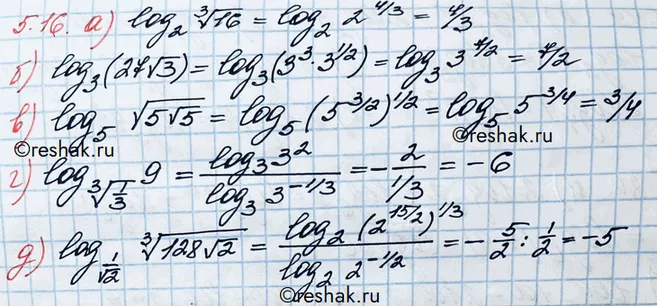 5.16. а) log₂ ∛16 = log₂ 2^(4/3) = 4/3
б) log₃(27√3) = log₃(3³·3^(1/2)) = log₃ 3^(7/2) = 7/2
в) log₅ √(5√5) = log₅(5^(3/2))^(1/2) = log₅ 5^(3/4) = 3/4
©reshak.ru ©reshak.ru
г) log_∛(1/3) 9 = log₃ 3² / log₃ 3^(-1/3) = -2/(1/3) = -6
д) log_(1/√2) ∛(128√2) = log₂ (2^(15/2))^(1/3) / log₂ 2^(-1/2) = -5/2 : 1/2 = -5
©reshak.ru